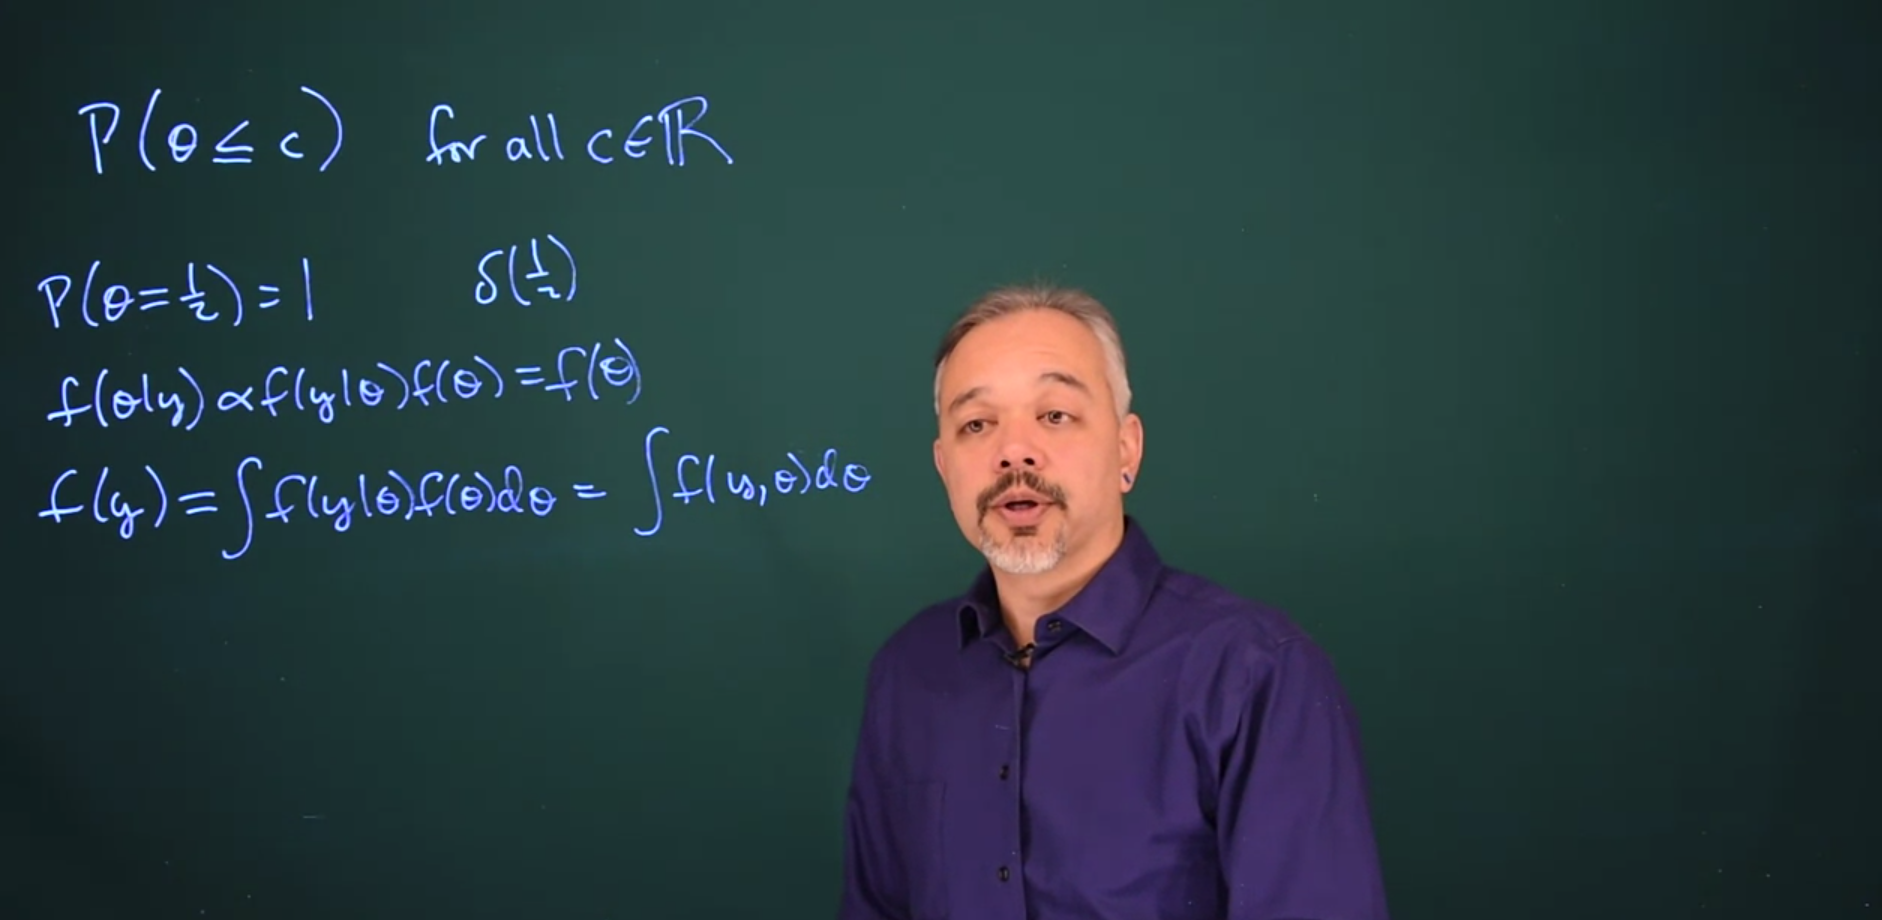 P(θ ≤ c) for all c ∈ ℝ
P(θ = 1/2) = 1 δ(1/2)
f(θ|y) ∝ f(y|θ)f(θ) = f(θ)
f(y) = ∫f(y|θ)f(θ)dθ = ∫f(y,θ)dθ